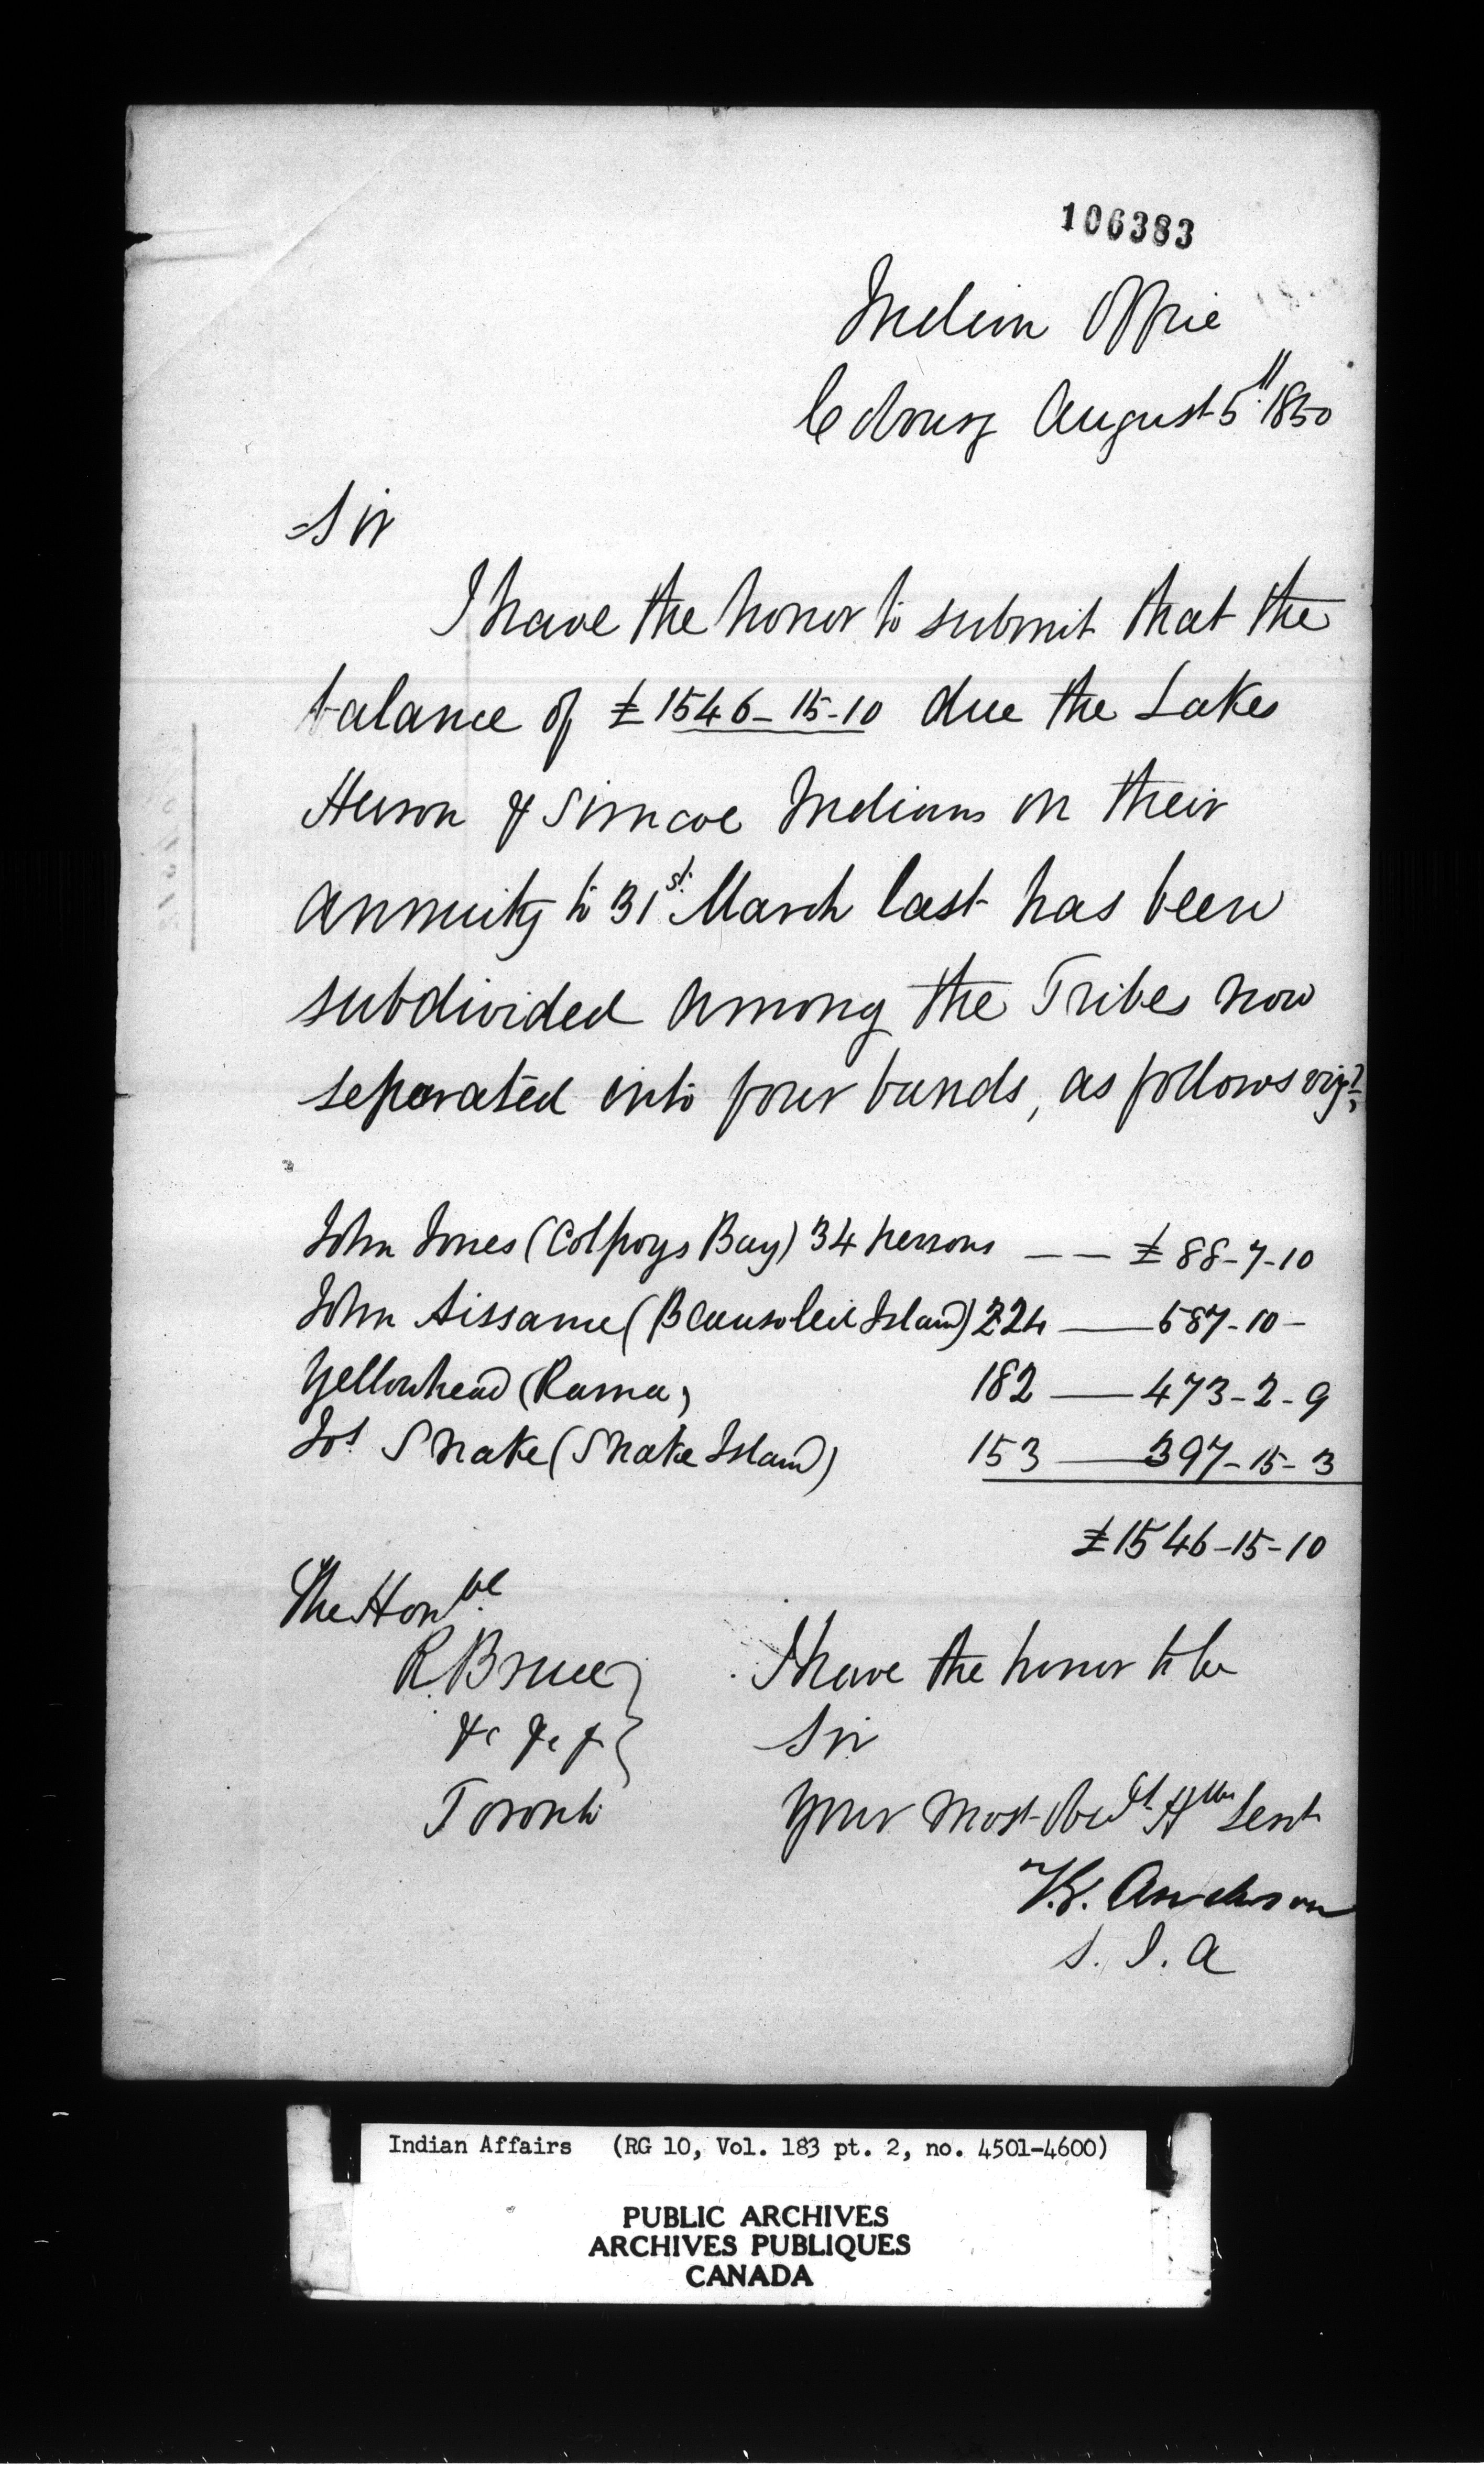 106383
Indian Office
Cobourg August 5th 1850
Sir
I have the honor to submit that the
balance of £1546-15-10 due the Lakes
Huron & Simcoe Indians on their
annuity to 31st March last has been
subdivided among the Tribes now
separated into four bands, as follows viz;
John Jones (Colpoys Bay) 34 persons —— £88-7-10
John Aissance (Beausoleil Island) 224 — 587-10-
Yellowhead (Rama) 182 — 473-2-9
Jos Snake (Snake Island) 153 — 397-15-3
£1546-15-10
The Honble
R. Bruce
&c &c &
Toronto
I have the honor to be
Sir
Your most obedt Hble Servt
T.G. Anderson
S. I. A
Indian Affairs (RG 10, Vol. 183 pt. 2, no. 4501-4600)
PUBLIC ARCHIVES
ARCHIVES PUBLIQUES
CANADA